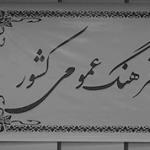 فرهنگ عمومی کشور